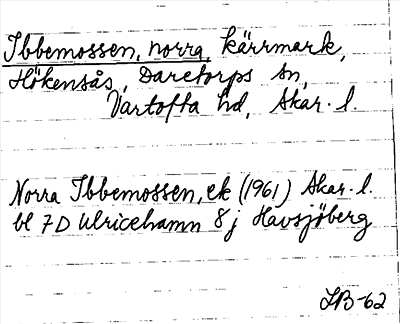 Ibbemossen, norra, kärrmark,
Hökensås, Daretorps sn,
Vartofta hd, Skar. l.
Norra Ibbemossen, ek (1961) Skar. l.
bl 7D Ulricehamn 8j Havsjöberg
LB-62